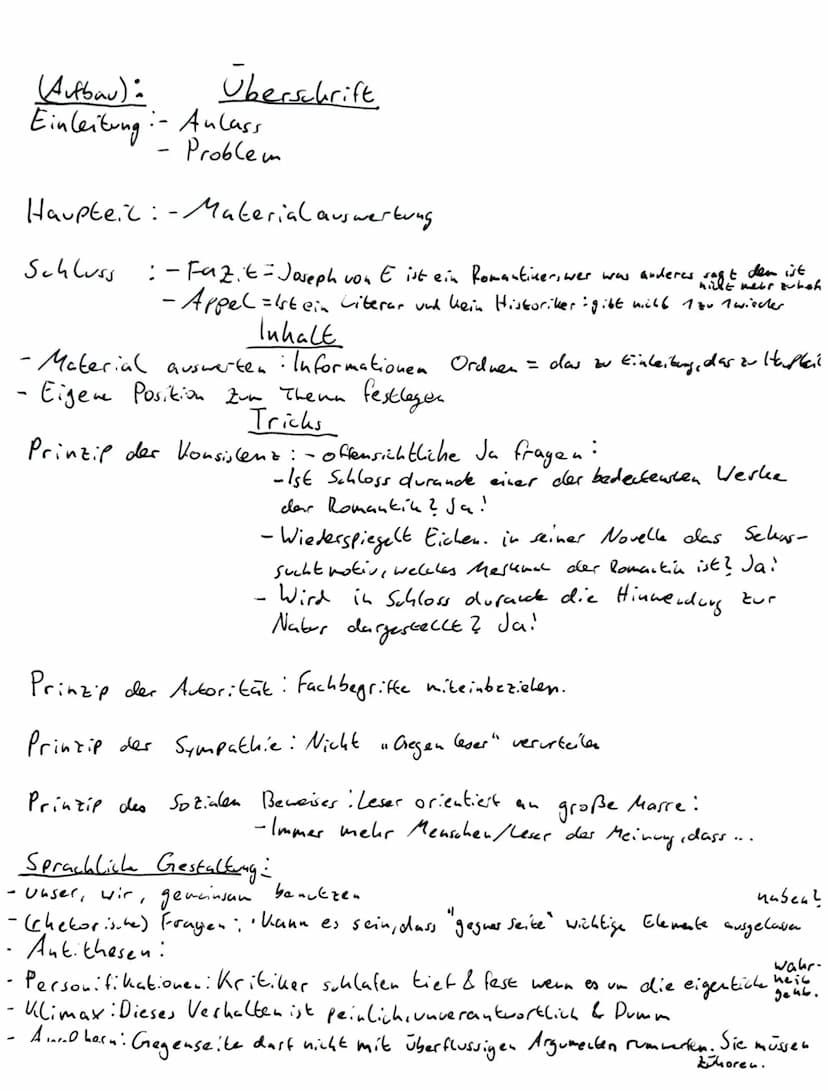 (Aufbau): Überschrift
Einleitung: - Anlass
- Problem
Haupteil: - Materialauswertung
Schluss : - Fazit = Joseph von E ist ein Romantiker, wer was anderes sagt dem ist
nicht mehr zu helf
- Appel = Ist ein Literar und kein Historiker: gibt nicht 1 zu 1 wieder
Inhalt
- Material auswerten: Informationen Ordnen = das zu Einleitung, das zu Hauptteil
- Eigene Position zum Thema festlegen
Tricks
Prinzip der Konsistenz: - offensichtliche Ja fragen:
- Ist Schloss durande einer der bedeutensten Werke
der Romantik? Ja!
- Wiederspiegelt Eichen. in seiner Novelle das Sehns-
suchtmotiv, welches Merkmal der Romantik ist? Ja!
- Wird in Schloss durande die Hinwendung zur
Natur dargestellt? Ja!
Prinzip der Autorität: Fachbegriffe miteinbeziehen.
Prinzip der Sympathie: Nicht "Gegen leser" verurteilen
Prinzip des Sozialen Beweises: Leser orientiert an große Masse:
- Immer mehr Menschen/Leser der Meinung, dass ...
Sprachliche Gestaltung:
- unser, wir, gemeinsam benutzen
- (rhetorische) Fragen: Kann es sein, dass "gegner seite" wichtige Elemente ausgelassen
haben?
- Antithesen:
- Personifikationen: Kritiker schlafen tief & fest wenn es um die eigentliche wahr-
heit
geht.
- Klimax: Dieses Verhalten ist peinlich, unverantwortlich & Dumm
- Gegenseite darf nicht mit überflussigen Argumenten rumwerfen. Sie müssen
zuhoren.